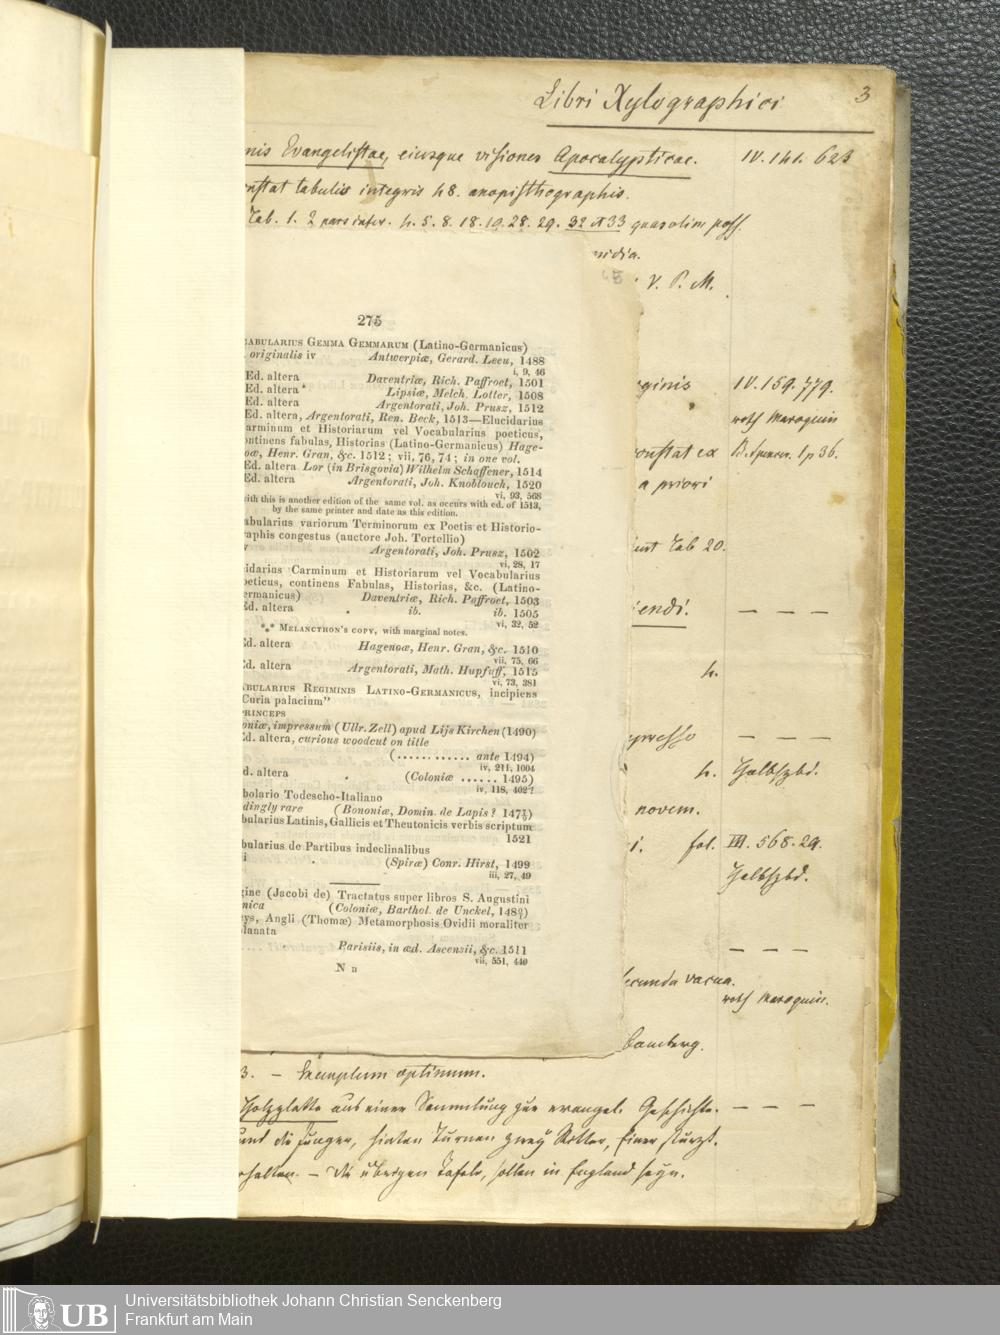 Libri Xylographici
3
nis Evangelistae, eiusque visiones Apocalypticae.
IV. 141. 623
nstat tabulis integris 48. anopisthographis.
Tab. 1. 2 pars infer. 4. 5. 8. 18. 19. 28. 29. 32 et 33 quas olim poss.
midia.
V. P. M.
275
CABULARIUS GEMMA GEMMARUM (Latino-Germanicus)
originalis iv Antwerpiæ, Gerard. Leeu, 1488
i, 9, 46
Ed. altera Daventriæ, Rich. Paffroet, 1501
Ed. altera Lipsiæ, Melch. Lotter, 1508
Ed. altera Argentorati, Joh. Prusz, 1512
Ed. altera, Argentorati, Ren. Beck, 1513—Elucidarius
arminum et Historiarum vel Vocabularius poeticus,
ontinens fabulas, Historias (Latino-Germanicus) Hage-
oæ, Henr. Gran, &c. 1512; vii, 76, 74; in one vol.
Ed. altera Lor (in Brisgovia) Wilhelm Schaffener, 1514
Ed. altera Argentorati, Joh. Knoblouch, 1520
vi, 93, 568
ith this is another edition of the same vol. as occurs with ed. of 1513,
by the same printer and date as this edition.
abularius variorum Terminorum ex Poetis et Historio-
raphis congestus (auctore Joh. Tortellio)
Argentorati, Joh. Prusz, 1502
vi, 28, 17
idarius Carminum et Historiarum vel Vocabularius
oeticus, continens Fabulas, Historias, &c. (Latino-
ermanicus) Daventriæ, Rich. Paffroet, 1503
Ed. altera ib. ib. 1505
vi, 32, 52
*⁎* MELANCTHON'S COPY, with marginal notes.
Ed. altera Hagenoæ, Henr. Gran, &c. 1510
vii, 75, 66
Ed. altera Argentorati, Math. Hupfuff, 1515
vi, 73, 381
ABULARIUS REGIMINIS LATINO-GERMANICUS, incipiens
Curia palacium”
PRINCEPS
oniæ, impressum (Ulr. Zell) apud Lijs Kirchen (1490)
Ed. altera, curious woodcut on title
(............ ante 1494)
iv, 211, 1004
d. altera (Coloniæ ...... 1495)
iv, 118, 402?
bolario Todescho-Italiano
dingly rare (Bononiæ, Domin. de Lapis?
bularius Latinis, Gallicis et Theutonicis verbis scriptum
1521
bularius de Partibus indeclinalibus
i (Spiræ) Conr. Hirst, 1499
iii, 27, 49
gine (Jacobi de) Tractatus super libros S. Augustini
nica (Coloniæ, Barthol. de Unckel,
eys, Angli (Thomæ) Metamorphosis Ovidii moraliter
lanata
Parisiis, in æd. Ascensii, &c. 1511
vii, 551, 440
N n
eginis IV. 159. 779.
roth Maroquin
constat ex B. Spencer. I p 36.
a priori
sunt Tab 20.
iendi. — — —
4.
— — —
4. Halbfzbd.
novem.
i. fol. III. 568. 29.
Halbfzbd.
— — —
secunda vacua.
roth Maroquin.
Bamberg.
3. — Exemplum optimum.
Holzplatte aus einer Sammlung zur evangel. Geschichte. — — —
und die Junger, hinten Turnen zwey Ritter, einer sturzt.
rhalten. — Die ubrigen Tafeln, sollen in England seyn.
UB
Universitätsbibliothek Johann Christian Senckenberg
Frankfurt am Main